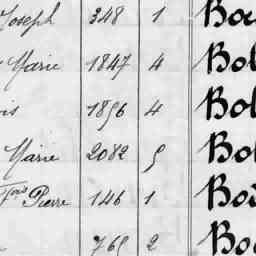 Joseph 348 1 Bou
Marie 1847 4 Bol
is 1896 4 Bol
Marie 2082 5 Bol
Fçois Pierre 146 1
765 2